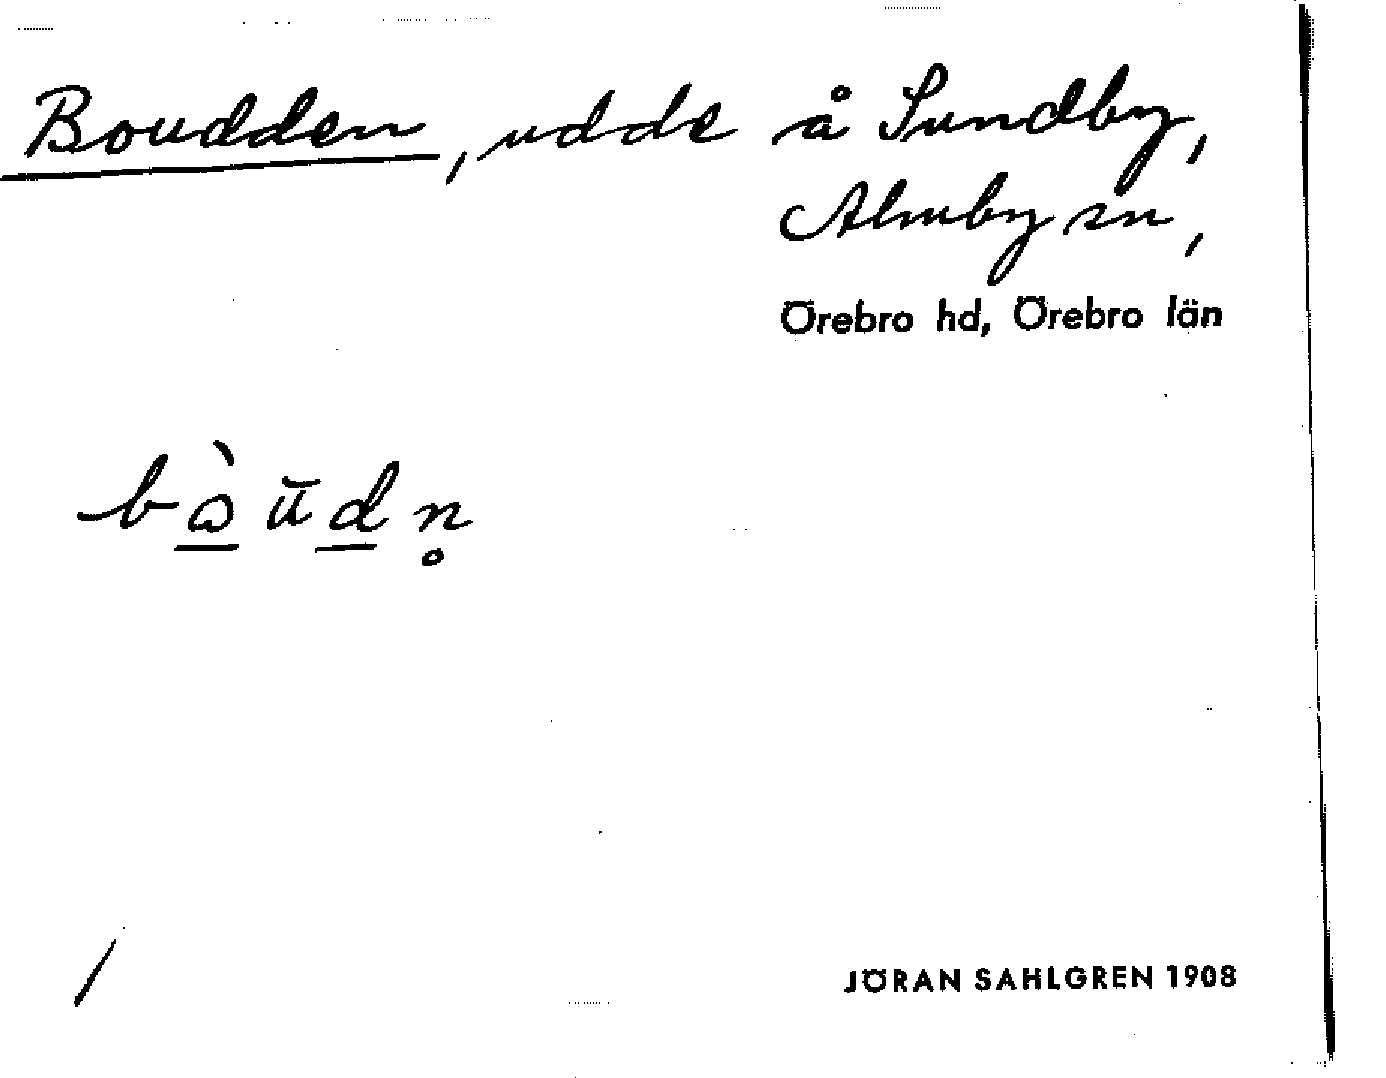 Boudden, udde å Sundby,
Almby sn,
Örebro hd, Örebro län
JÖRAN SAHLGREN 1908